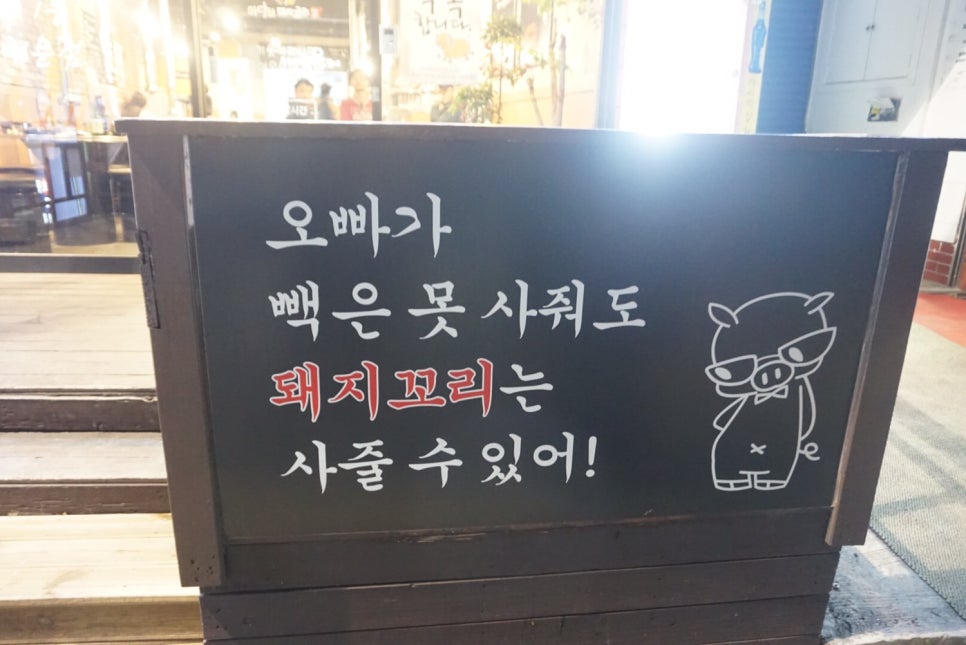 오빠가
빽은 못 사줘도
돼지꼬리는
사줄 수 있어!
합니다